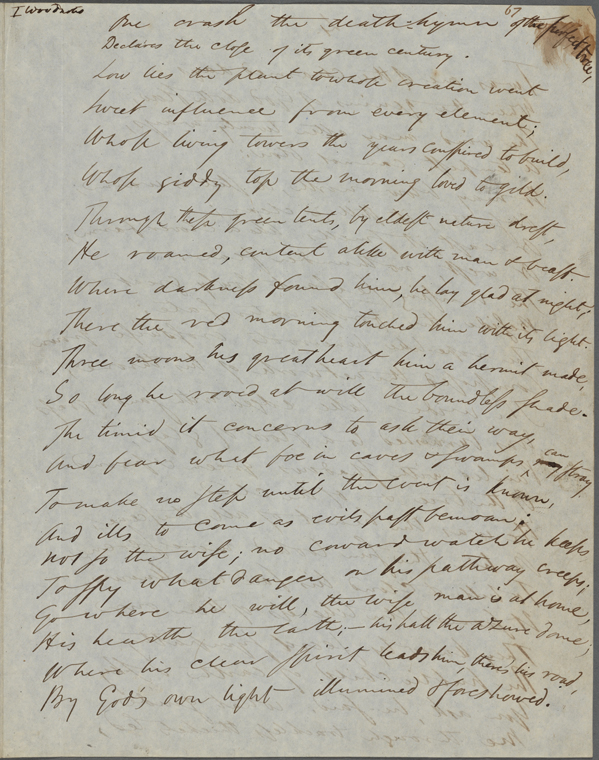 I Woodnotes
67
One crash the death-hymn of the perfect tree,
Declares the close of its green century.
Low lies the plant to whose creation went
Sweet influence from every element;
Whose living towers the years conspired to build,
Whose giddy top the morning loved to gild.
Through these green tents, by eldest nature drest,
He roamed, content alike with man & beast.
Where darkness found him, he lay glad at night;
There the red morning touched him with its light.
Three moons his great heart him a hermit made,
So long he roved at will the boundless shade.
The timid it concerns to ask their way,
And fear what foe in caves & swamps, can stray
To make no step until the event is known,
And ills to come as evils past bemoan;
Not so the wise; no coward watch he keeps
To spy what danger on his pathway creeps;
Go where he will, the wise man is at home,
His hearth the earth; – his hall the azure dome;
Where his clear spirit leads him, there's his road,
By God's own light illumined & foreshowed.